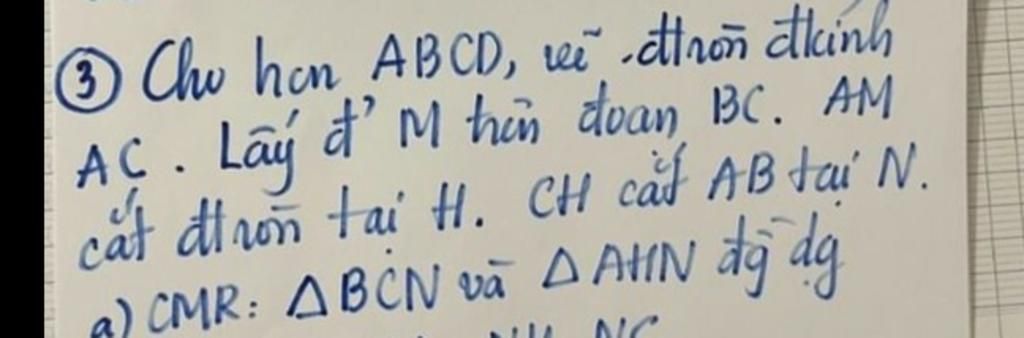 ③ Cho hcn ABCD, vẽ đtròn đkính
AC. Lấy đ' M trên đoạn BC. AM
cắt đtròn tại H. CH cắt AB tại N.
a) CMR: △BCN và △AHN đg dg